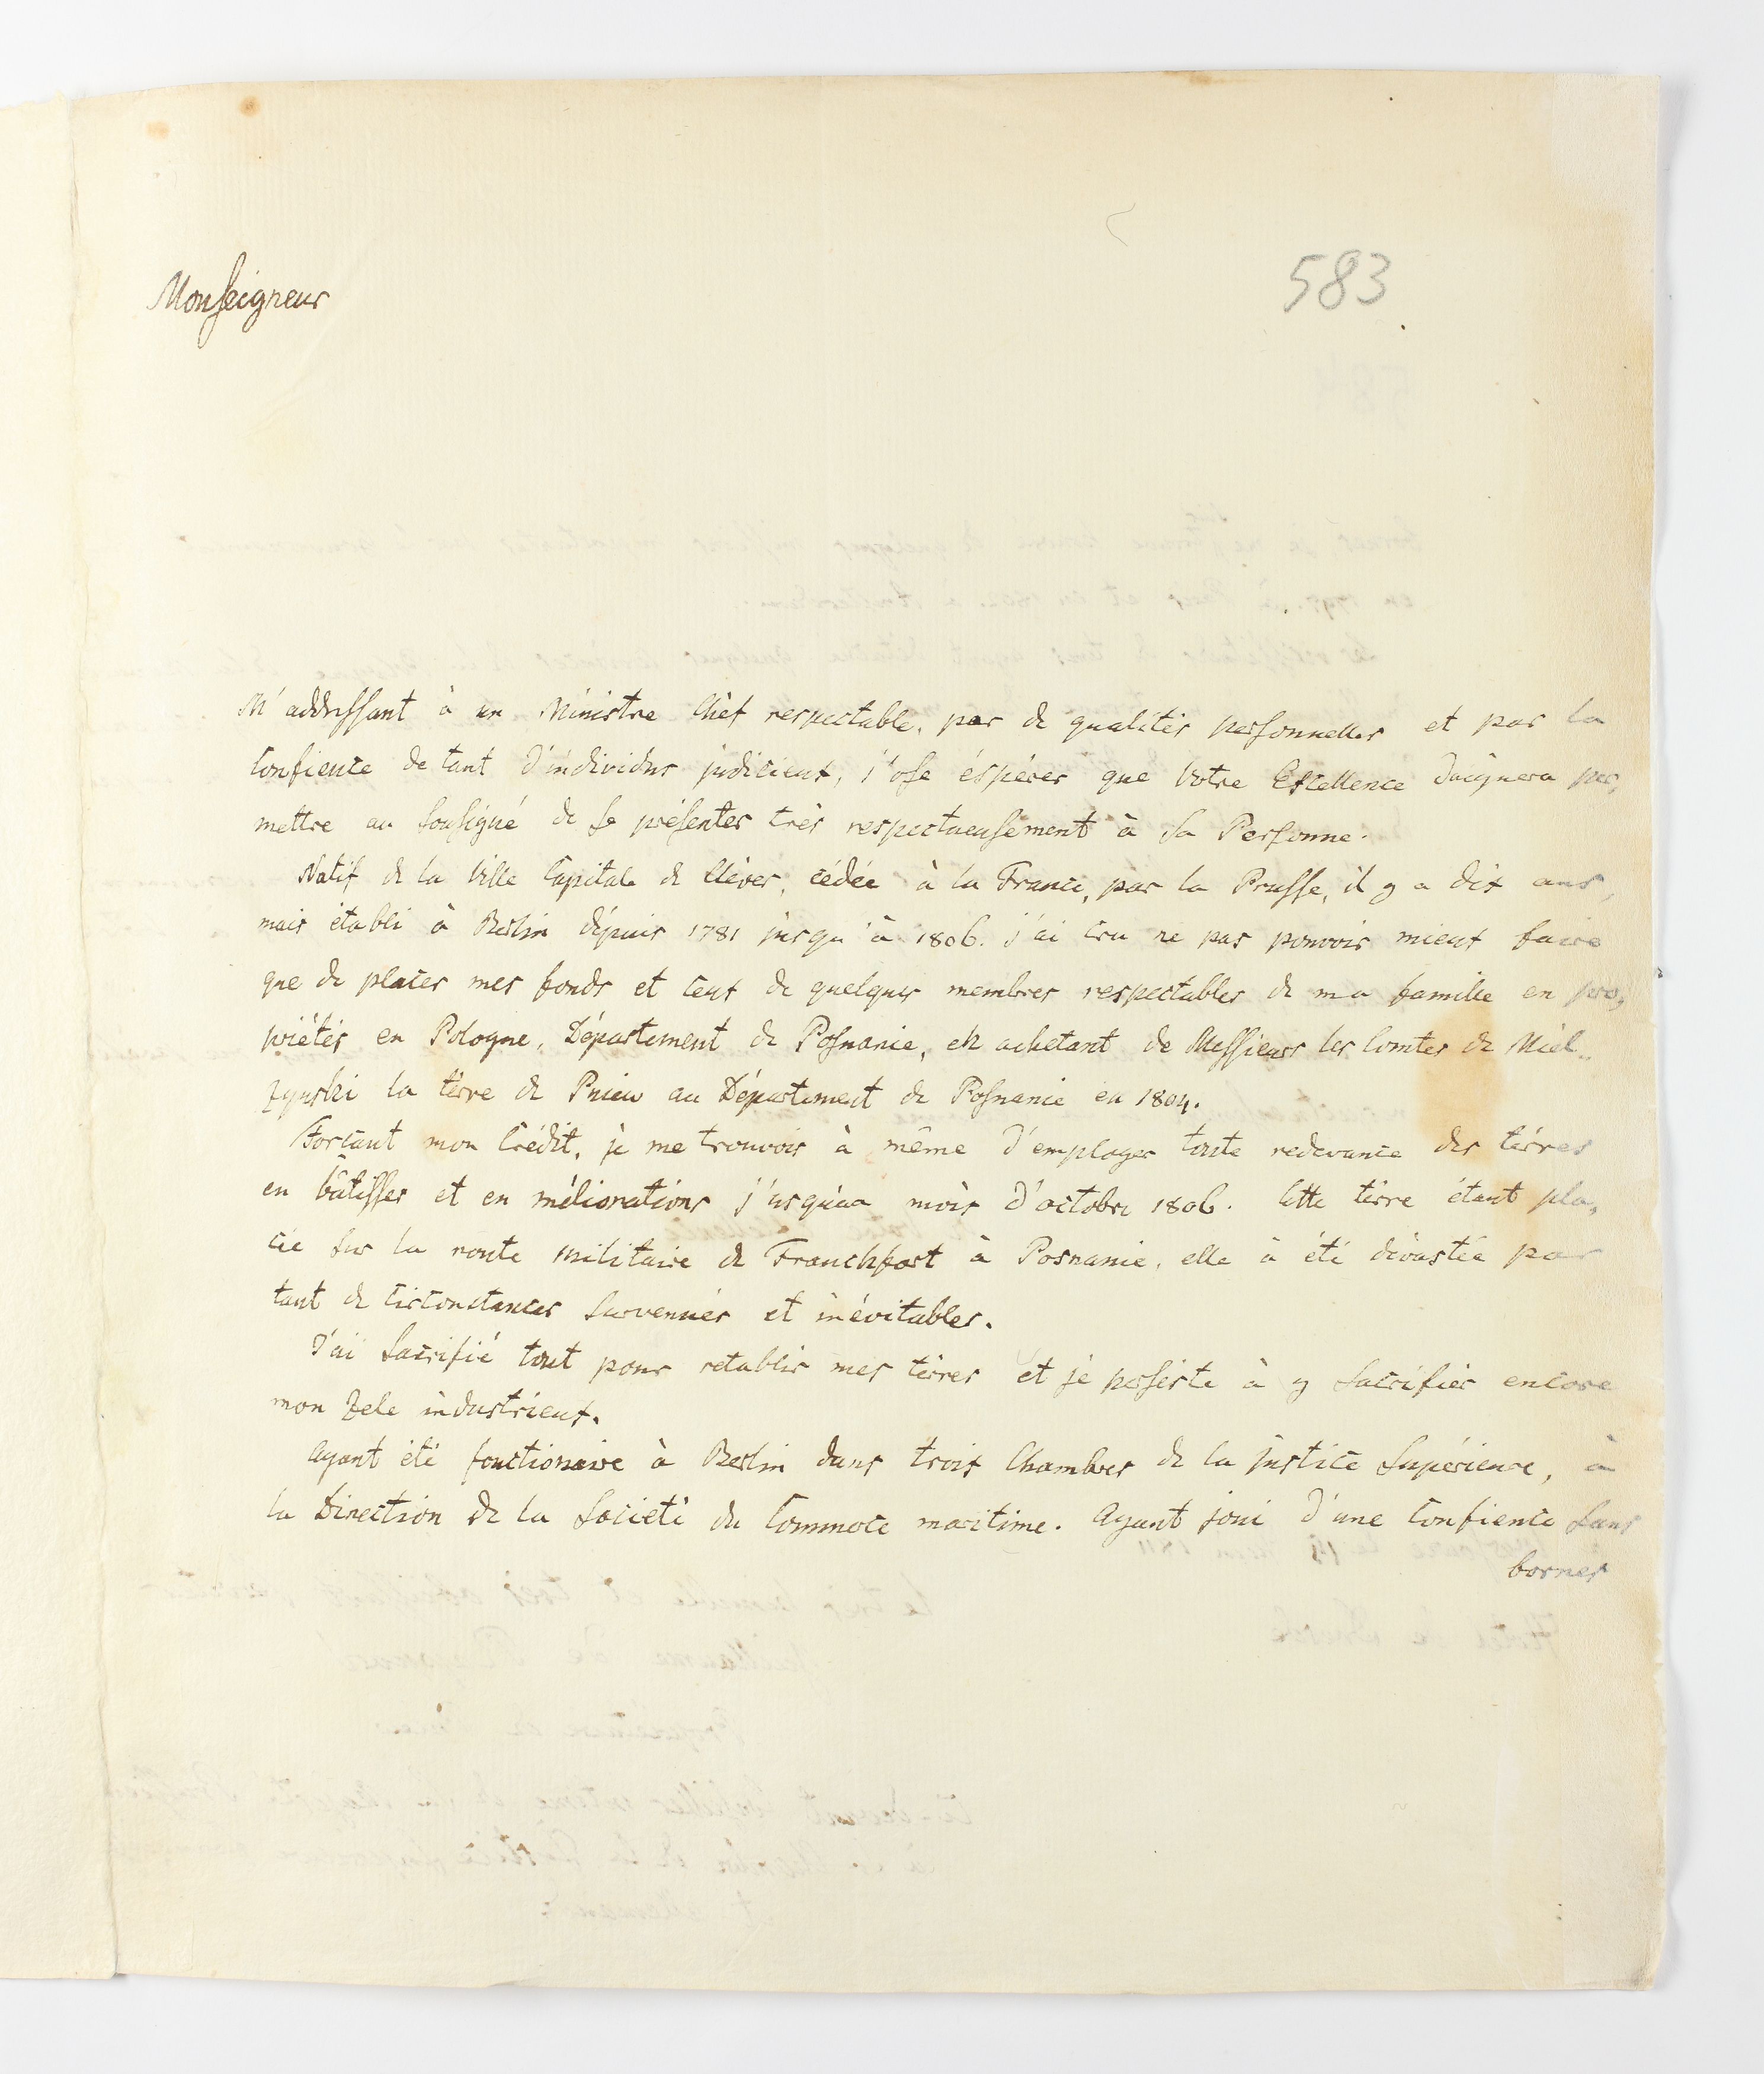 583
Monseigneur
M'addressant à un Ministre Chèf respectable, par de qualités personnelles et par la
Confience de tant d'individus judicieux, j'ose éspérer que Votre Excellence daignera per,
mettre au Sousigné de se présenter très respectueusement à Sa Personne.
Natif de la Ville Capitale de Clèves, cédée à la France, par la Prusse, il y a dix ans,
mais établi à Berlin dépuis 1781 jusqu'à 1806. j'ai cru ne pas pouvoir mieux faire
que de placer mes fonds et ceux de quelques membres respectables de ma famille en pro,
priétés en Pologne, Département de Posnanie, en achetant de Messieurs les Comtes de Miel..
zynski la tèrre de Pniew au Département de Posnanie en 1804.
Forçant mon Crédit, je me trouvois à même d'employer toute redevance des tèrres
en bâtisses et en méliorations j'usqu'au mois d'octobre 1806. Cette tèrre étant pla,
cée sur la route militaire de Franckfort à Posnanie, elle à été dévastée par
tant de circonstances survenues et inévitables.
J'ai Sacrifié tout pour retablir mes tèrres et je persiste à y Sacrifier encore
mon Zele industrieux.
Ayant été fonctionaire à Berlin dans trois Chambres de la justice Supérieure, à
la Direction de la Societé du Commerce maritime. Ayant joui d'une Confience Sans
bornes